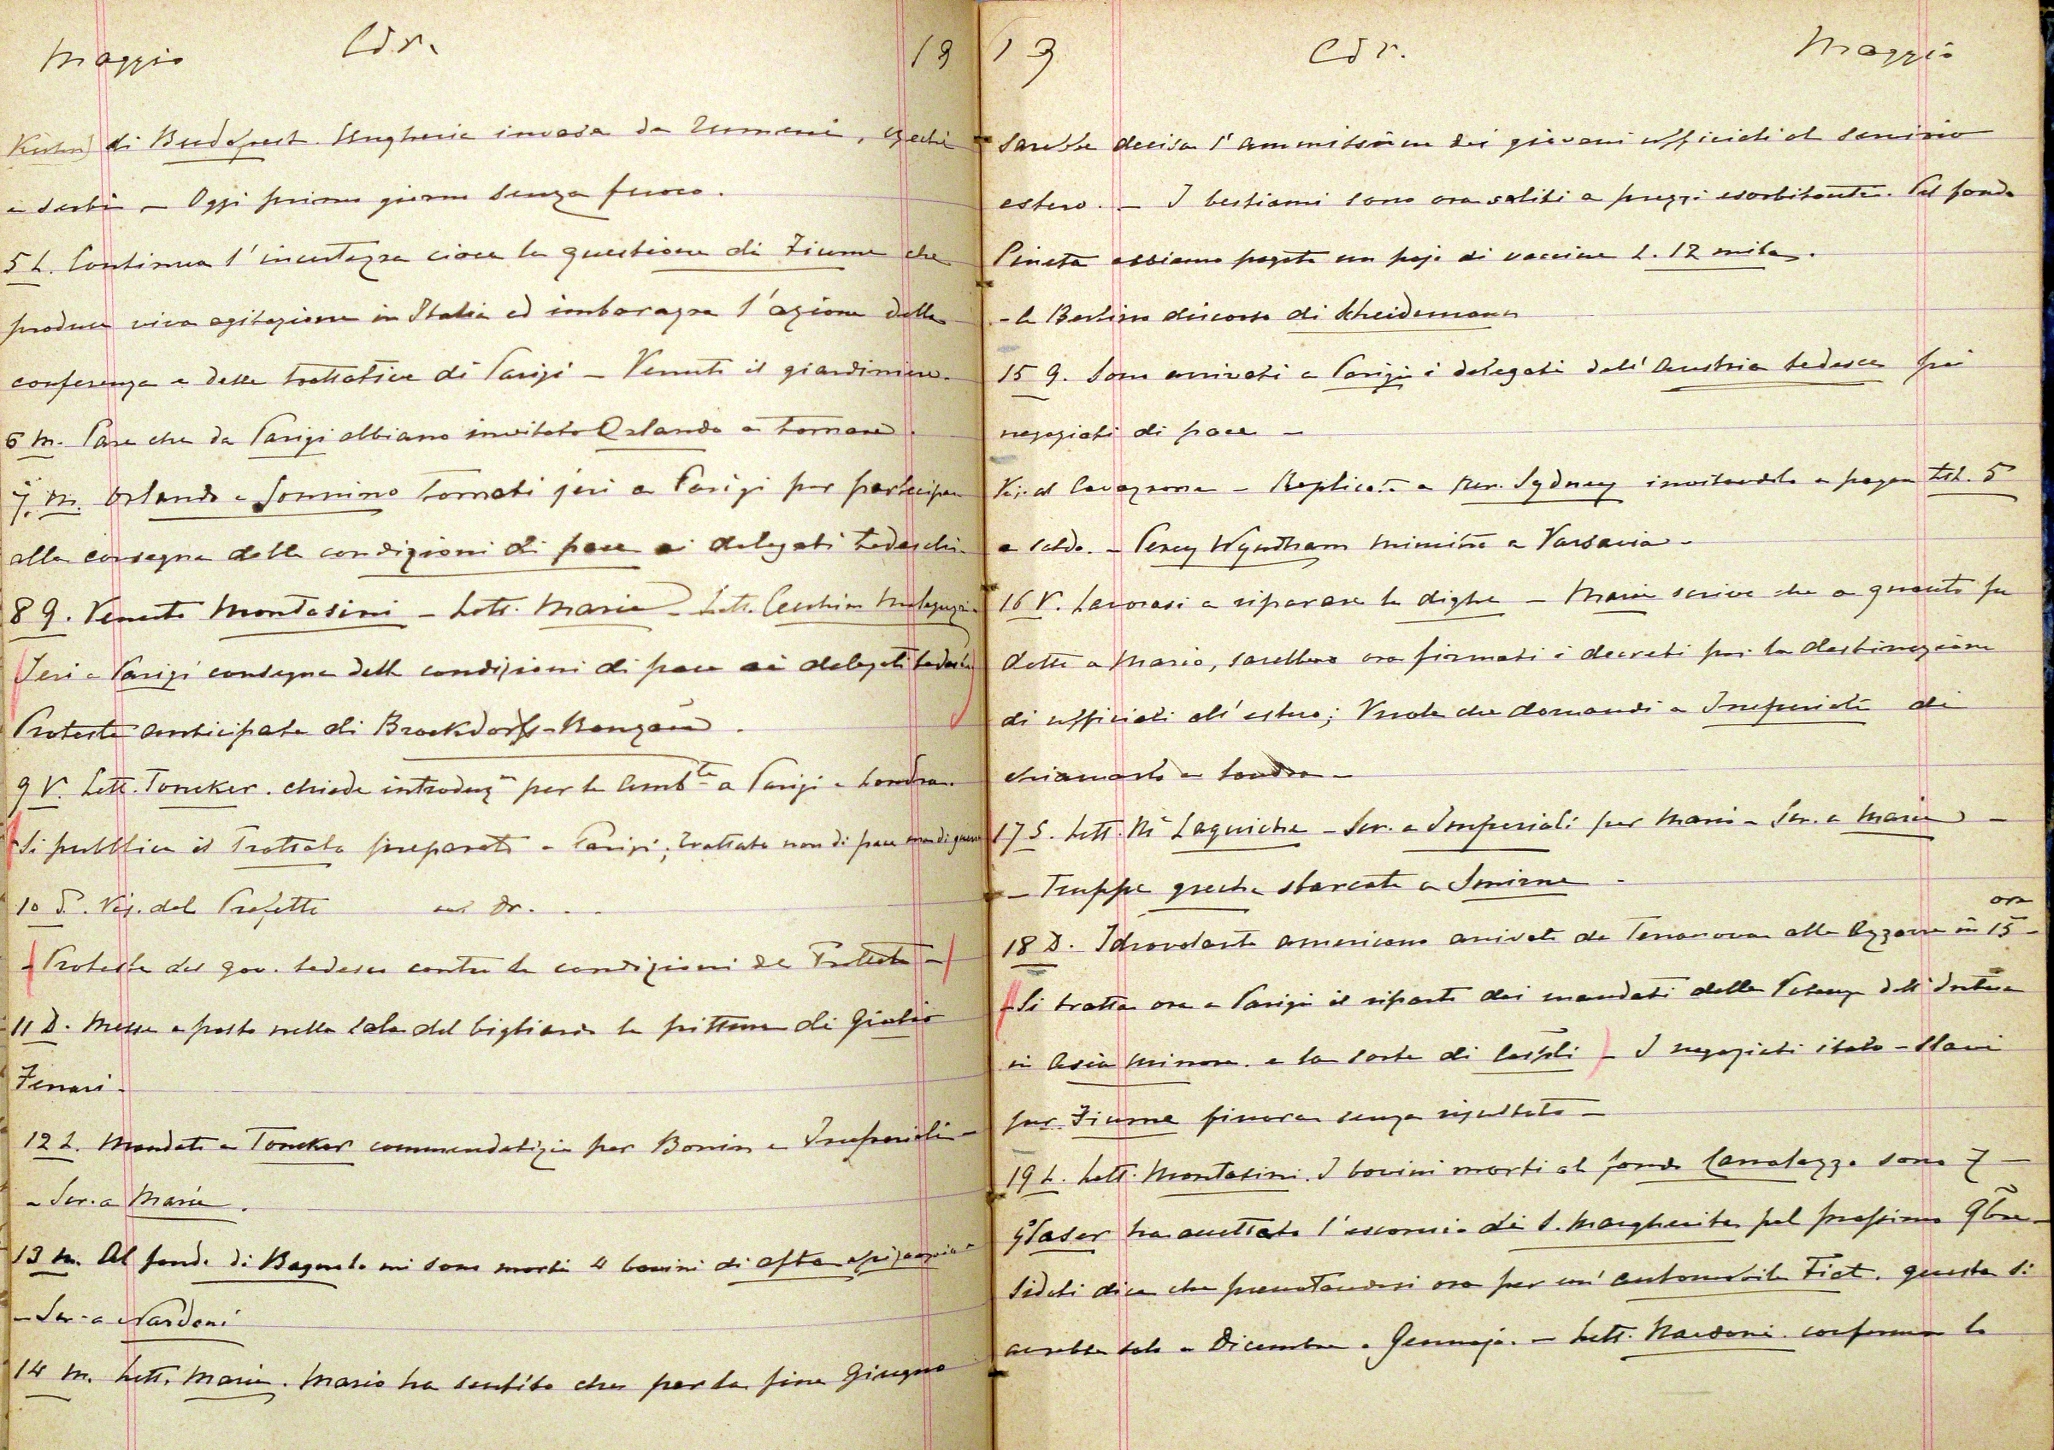 Maggio Cdr. 19
di Budapest. Ungheria invasa da Rumeni, czechi
e serbi - Oggi primo giorno senza fuoco.
5 L. Continua l'incertezza circa la questione di Fiume che
produce viva agitazione in Italia ed imbarazza l'azione della
conferenza e delle trattative di Parigi - Venuto il giardiniere.
6 M. Pare che da Parigi abbiano invitato Orlando a tornare.
7. M. Orlando e Sonnino tornati jeri a Parigi per partecipare
alla consegna delle condizioni di pace ai delegati tedeschi
8 G. Venuto Montasini - Lett. Maria - Lett. Cecchini
Jeri a Parigi consegna delle condizioni di pace ai delegati tedeschi
Proteste anticipate di Brockdorff-Ranzau.
9 V. Lett. Toncker. chiede introduz.ni per le Amb.te a Parigi e Londra.
Si pubblica il Trattato preparato a Parigi; trattato non di pace ma di guerra
10 S. Vis. del Prefetto col Dr. . .
- Proteste del gov. tedesco contro le condizioni del Trattato -
11 D. Messe a posto nella sala del bigliardo le pitture di Giulio
Ferrari -
12 L. Mandate a Toncker commendatizie per Bonin e Imperiali -
- Scr. a Maria.
13 M. Al fondo di Bagnolo mi sono morti 4 bovini di afta epizootica
- Scr. a Nardoni
14 M. Lett. Maria. Mario ha sentito che per la fine Giugno
19 Cdr. Maggio
sarebbe decisa l'ammissione dei giovani ufficiali al servizio
estero. - I bestiami sono ora saliti a prezzi esorbitanti. Pel fondo
Pineta abbiamo pagato un pajo di vaccine L. 12 mila.
- A Berlino discorso di Scheidemann
15 G. Sono arrivati a Parigi i delegati dell'Austria tedesca pei
negoziati di pace -
Vis. al Cavazzana - Replicato a Mr. Sydney invitandolo a pagare Lst. 5
a saldo. - Percy Wyndham ministro a Varsavia -
16 V. Lavorasi a riparare la diga - Maria scrive che a quanto fu
detto a Mario, sarebbero ora firmati i decreti per la destinazione
di ufficiali all'estero; Vuole che domandi a Imperiali di
chiamarlo a Londra -
17 S. Lett. Laguiche - Scr. a Imperiali per Mario - Scr. a Maria -
- Truppe greche sbarcate a Smirne -
18 D. Idrovolante americano arrivato da Terranova alle Azzorre in 15 ore -
- Si tratta ora a Parigi il riparto dei mandati delle Potenze dell'Intesa
in Asia Minore. e la sorte di - I negoziati italo-slavi
per Fiume finora senza risultato -
19 L. Lett. Montasini. I bovini morti al fondo Canalazzo sono 7 -
Glaser ha accettato l'escomio di S. Margherita pel prossimo 9bre -
Sidoti dice che prenotandosi ora per un'automobile Fiat. questa si
avrebbe solo a Dicembre o Gennajo. - Lett. Nardoni. conferma la